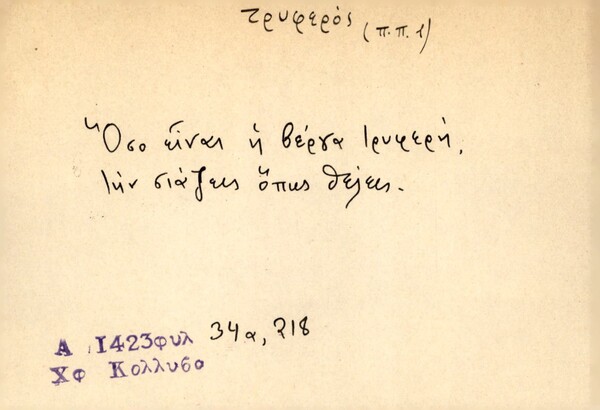 τρυφερός (π.π. 1)
Ὅσο εἶναι ἡ βέργα τρυφερή,
τήν σιάζεις ὅπως θέλεις.
Α 1423φυλ 34α, 218
Χφ Κολλυδο